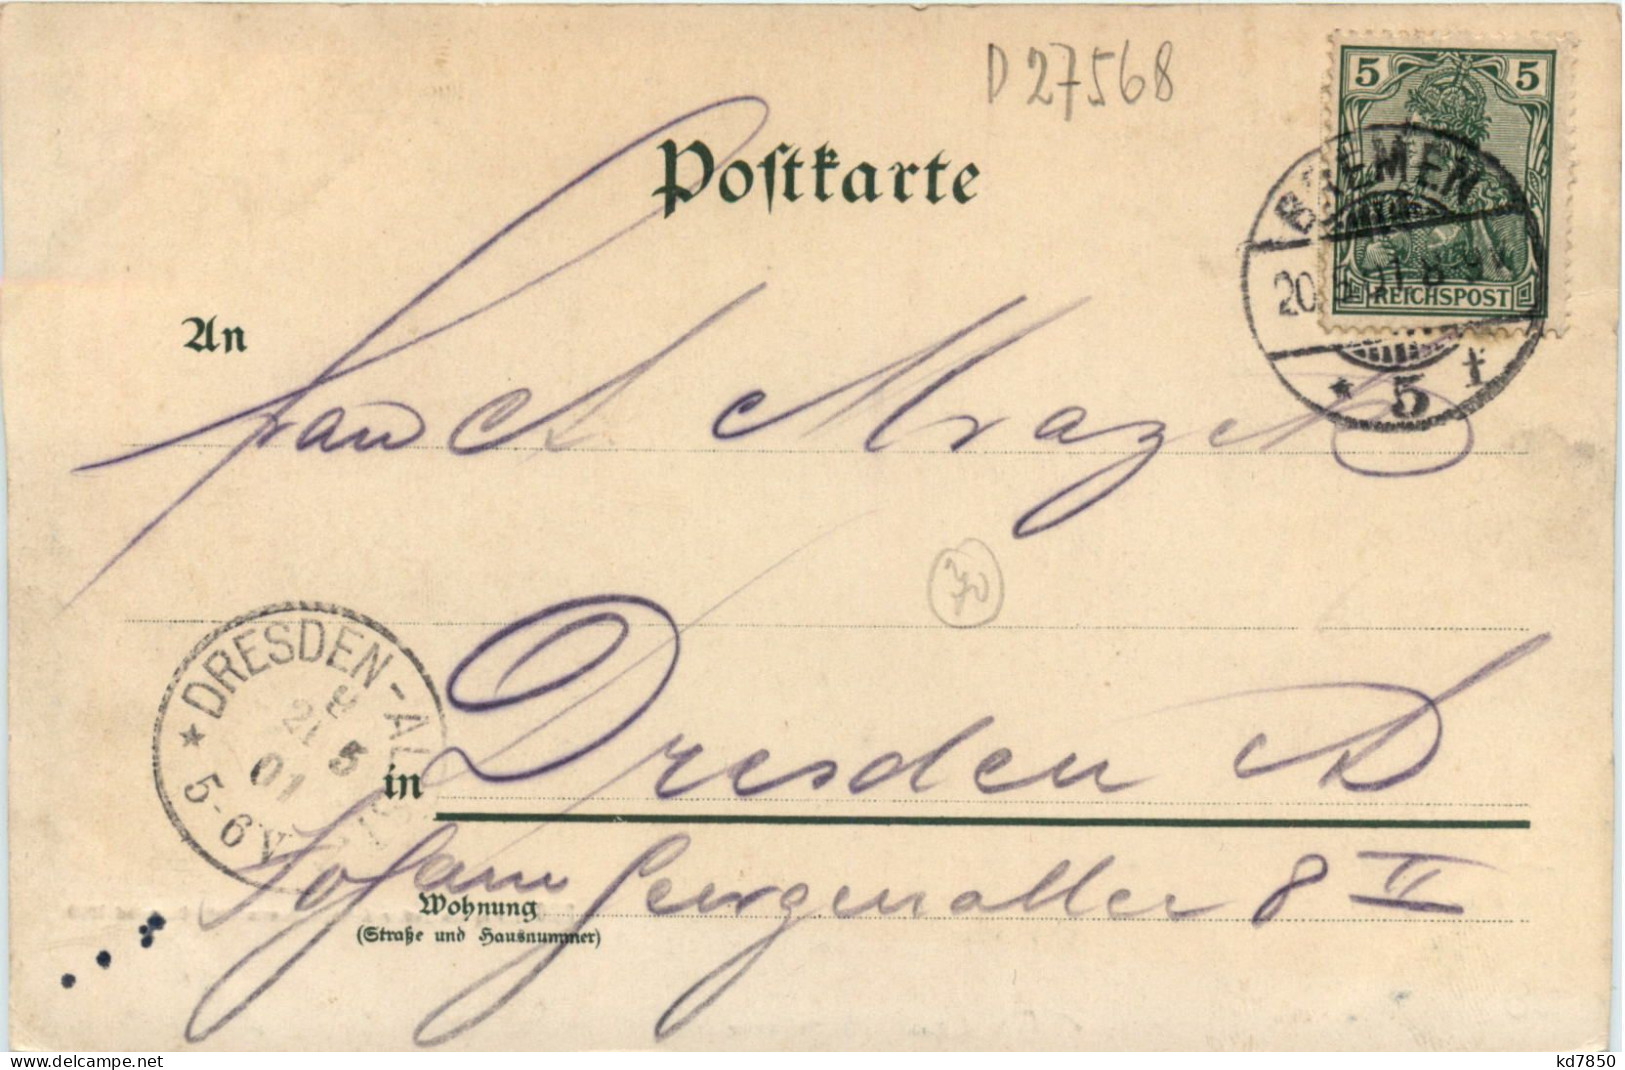 D 27568
5 5
Postkarte
BREMEN
20.5.01. 8-9 V.
REICHSPOST
* 5 †
An
Mrazek
70
* DRESDEN-ALTST.
21 5
01
5-6 V
in
Dresden A
Johann Georgenallee 8 II
Wohnung
(Straße und Hausnummer)
delcampe.net
kd7850